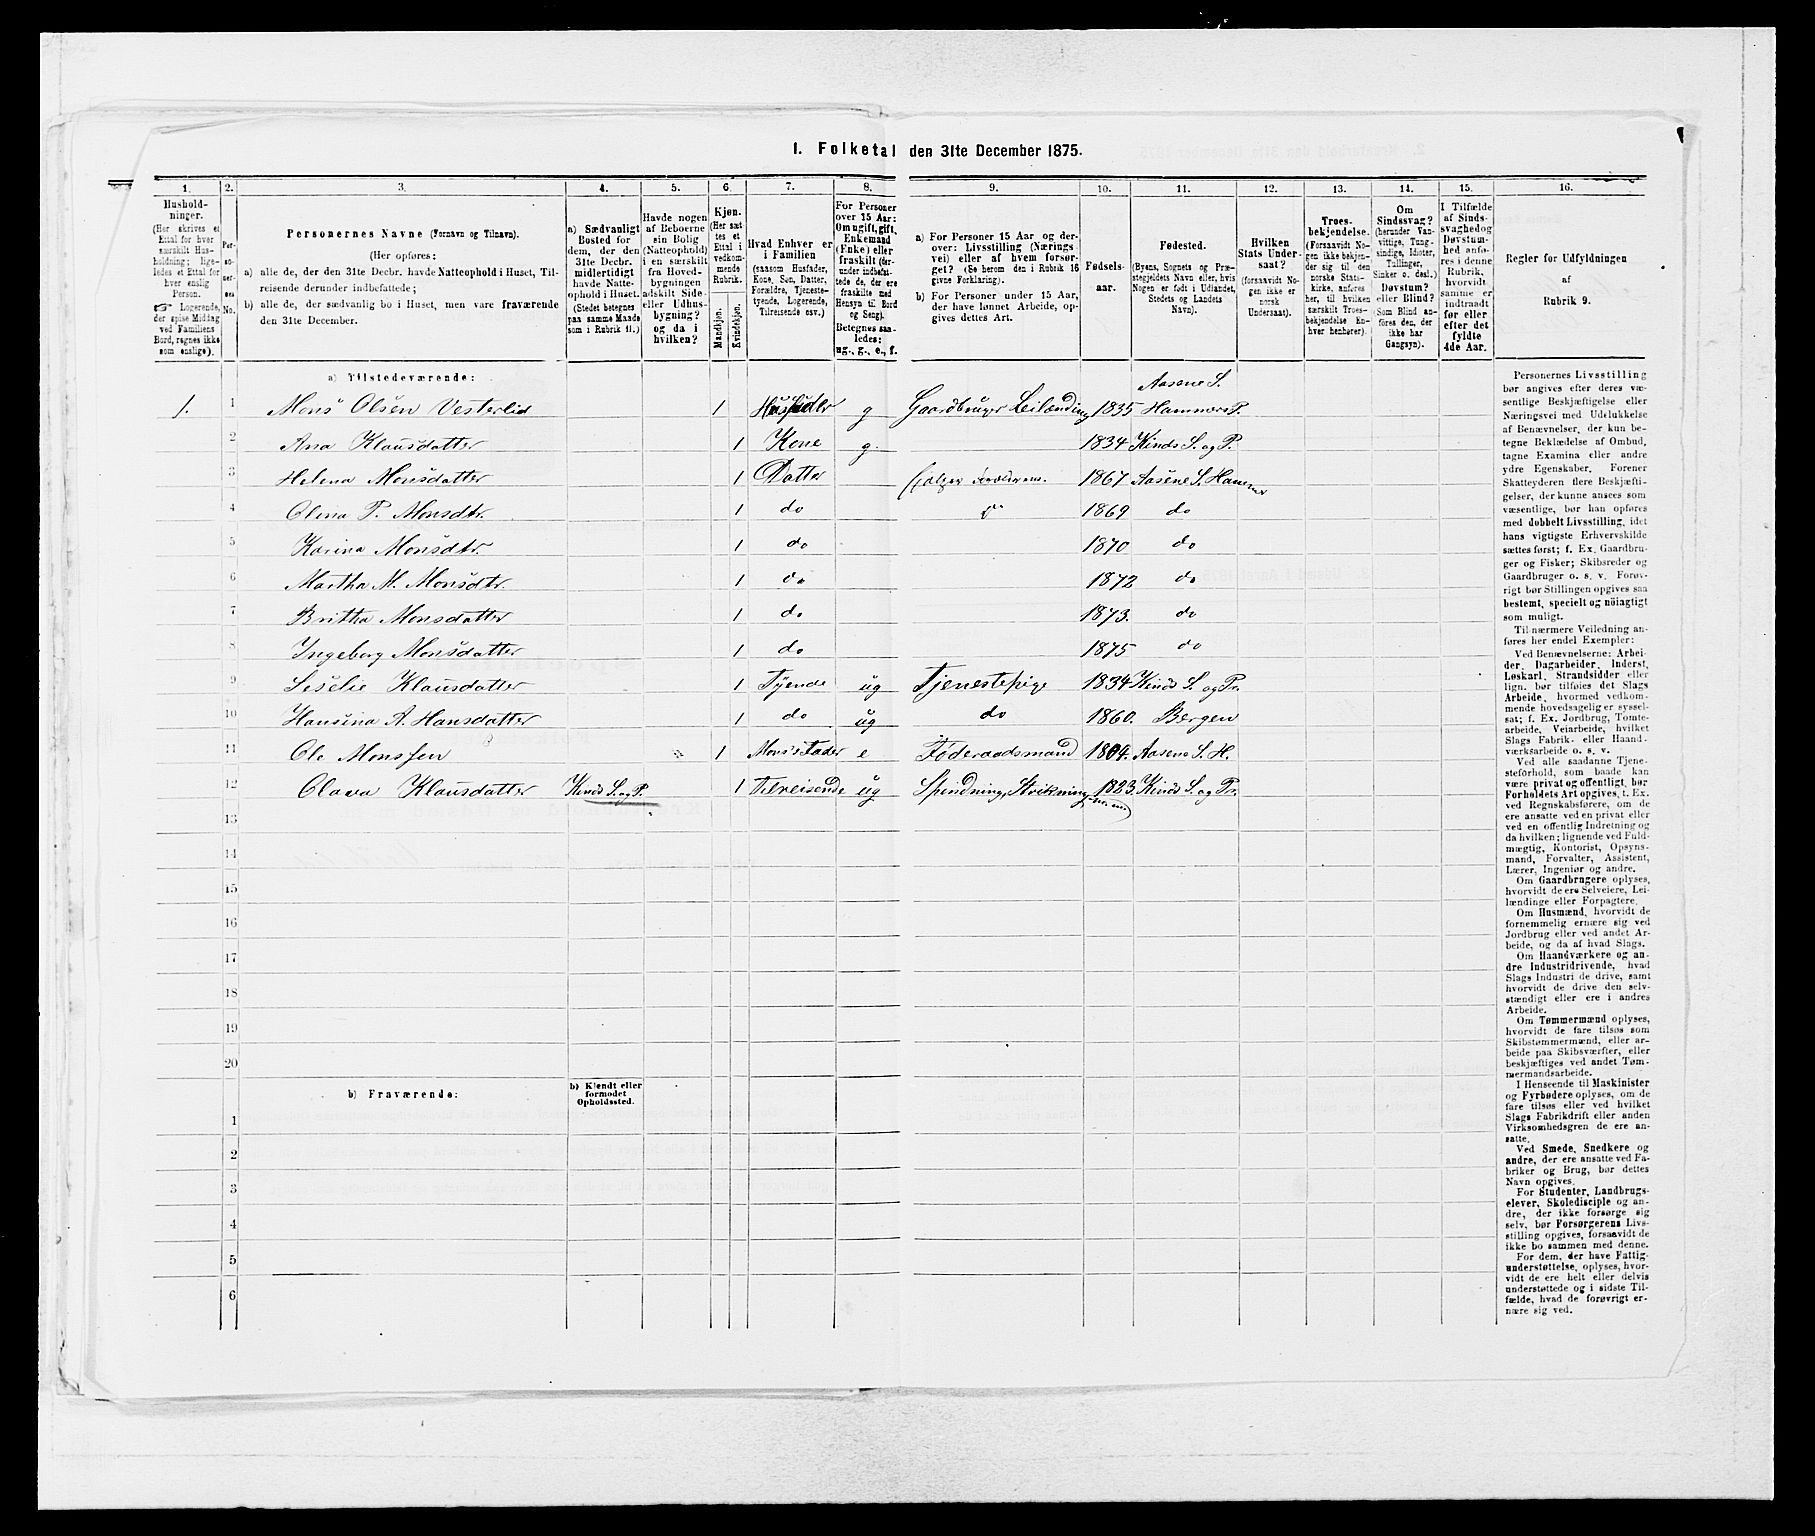 1. Folketal den 31te December 1875.
1. 2. 3. 4. 5. 6. 7. 8. 9. 10. 11. 12. 13. 14. 15. 16.
Hushold-
ninger.
(Her skrives et
Ettal for hver
særskilt Hus-
holdning; lige-
ledes et Ettal for
hver enslig
Person.
☞ Logerende,
der spise Middag
ved Familiens
Bord, regnes ikke
som enslige).
Per-
so-
ner-
nes
No.
Personernes Navne (Fornavn og Tilnavn).
(Her opføres:
a) alle de, der den 31te Decbr. havde Natteophold i Huset, Til-
reisende derunder indbefattede;
b) alle de, der sædvanlig bo i Huset, men vare fraværende
den 31te December.
a) Sædvanligt
Bosted for
dem, der den
31te Decbr.
midlertidigt
havde Natte-
ophold i Huset.
(Stedet betegnes
paa samme Maade
som i Rubrik 11.)
Havde nogen
af Beboerne
sin Bolig
(Natteophold)
i en særskilt
fra Hoved-
bygningen
adskilt Side-
eller Udhus-
bygning?
og da i
hvilken?
Kjøn.
(Her sæt-
tes et
Ettal i
vedkom-
mende
Rubrik.
Mandkjøn.
Kvindekjøn.
Hvad Enhver er
i Familien
(saasom Husfader,
Kone, Søn, Datter,
Forældre, Tjeneste-
tyende, Logerende,
Tilreisende osv.)
For Personer
over 15 Aar:
Om ugift, gift,
Enkemand
(Enke) eller
fraskilt (der-
under indbefat-
tede de, der ere
fraskilte med
Hensyn til Bord
og Seng).
Betegnes saa-
ledes:
ug., g., e., f.
a) For Personer 15 Aar og der-
over: Livsstilling (Nærings-
vei) eller af hvem forsør-
get? (Se herom den i Rubrik 16
givne Forklaring).
b) For Personer under 15 Aar,
der have lønnet Arbeide, op-
gives dettes Art.
Fødsels-
aar.
Fødested.
(Byens, Sognets og Præ-
stegjeldets Navn eller, hvis
Nogen er født i Udlandet,
Stedets og Landets
Navn).
Hvilken
Stats Under-
saat?
(forsaavidt No-
gen ikke er
norsk
Undersaat).
Troes-
bekjendelse.
(Forsaavidt No-
gen ikke bekjen-
der sig til den
norske Stats-
kirke, anføres
her, til hvilken
særskilt Troes-
bekjendelse En-
hver henhører).
Om
Sindssvag?
(herunder Van-
vittige, Tung-
sindige, Idioter,
Tullinger,
Sinker o. desl.)
Døvstum?
eller Blind?
(Som Blind an-
føres den, der
ikke har
Gangsyn).
I Tilfælde
af Sinds-
svaghed og
Døvstum-
hed anfø-
res i denne
Rubrik,
hvorvidt
samme er
indtraadt
før eller
efter det
fyldte
4de Aar.
Regler for Udfyldningen
af
Rubrik 9.
a) Tilstedeværende:
Aasene S.
1. 1 Mons Olsen Vesterlid 1 Husfader g Gaardbruger Leilænding 1835 Hammers P.
2 Ana Klausdatter 1 Kone g. 1834 Kinds S. og P.
3 Helena Monsdatter 1 Datter hjelper Forældrene. 1867 Aasene S. Hammer
4 Olena P. Monsdtr. 1 do do 1869 do
5 Karina Monsdtr. 1 do 1870 do
6 Martha M. Monsdtr. 1 do 1872 do
7 Britha Monsdatter 1 do 1873. do
8 Ingeborg Monsdatter 1 do 1875 do
9 Leselie Klausdatter 1 Tyende ug Tjenestepige 1834 Kinds S. og Pr.
10 Hansina A. Hansdatter 1 do ug do 1860. Bergen
11 Ole Monssen 1 Mons's Fader e Føderaadsmand 1804. Aasene S. H.
12 Olava Klausdatter Kinds S. og P. 1 Tilreisende ug Spindning, Strikning 1823. Kinds S. og Pr.
13
14
15
16
17
18
19
20
b) Fraværende:
b) Kjendt eller
formodet
Opholdssted.
1
2
3
4
5
6
Personernes Livsstilling
bør angives efter deres væ-
sentlige Beskjæftigelse eller
Næringsvei med Udelukkelse
af Benævnelser, der kun be-
tegne Beklædelse af Ombud,
tagne Examina eller andre
ydre Egenskaber. Forener
Skatteyderen flere Beskjæfti-
gelser, der kunne ansees som
væsentlige, bør han opføres
med dobbelt Livsstilling, idet
hans vigtigste Erhvervskilde
sættes først; f. Ex. Gaardbru-
ger og Fisker; Skibsreder og
Gaardbruger o. s. v. Forøv-
rigt bør Stillingen opgives saa
bestemt, specielt og nøiagtigt
som muligt.
Til nærmere Veiledning an-
føres her endel Exempler:
Ved Benævnelserne: Arbei-
der, Dagarbeider, Inderst,
Løskarl, Strandsidder eller
lign. bør tilføies det Slags
Arbeide, hvormed vedkom-
mende hovedsagelig er syssel-
sat; f. Ex. Jordbrug, Tomte-
arbeide, Veiarbeide, hvilket
Slags Fabrik- eller Haand-
værksarbeide o. s. v.
Ved alle saadanne Tjene-
steforhold, som baade kan
være privat og offentligt, bør
Forholdets Art opgives, t. Ex.
ved Regnskabsførere, om de
ere ansatte ved en privat eller
ved en offentlig Indretning og
da hvilken; lignende ved Fuld-
mægtig, Kontorist, Opsyns-
mand, Forvalter, Assistent,
Lærer, Ingeniør og andre.
Om Gaardbrugere oplyses,
hvorvidt de ere Selveiere, Lei-
lændinge eller Forpagtere.
Om Husmænd, hvorvidt de
fornemmelig ernære sig ved
Jordbrug eller ved andet Ar-
beide, og da af hvad Slags.
Om Haandværkere og an-
dre Industridrivende, hvad
Slags Industri de drive, samt
hvorvidt de drive den selv-
stændigt eller ere i andres
Arbeide.
Om Tømmermænd oplyses,
hvorvidt de fare tilsøs som
Skibstømmermænd, eller ar-
beide paa Skibsværfter, eller
beskjæftiges ved andet Tøm-
mermandsarbeide.
I Henseende til Maskinister
og Fyrbødere oplyses, om de
fare tilsøs eller ved hvilket
Slags Fabrikdrift eller anden
Virksomhedsgren de ere an-
satte.
Ved Smede, Snedkere og
andre, der ere ansatte ved Fa-
briker og Brug, bør dettes
Navn opgives.
For Studenter, Landbrugs-
elever, Skoledisciple og an-
dre, der ikke forsørge sig
selv, bør Forsørgerens Livs-
stilling opgives, forsaavidt de
ikke bo sammen med denne.
For dem, der have Fattig-
understøttelse, oplyses, hvor-
vidt de ere helt eller delvis
understøttede og i sidste Til-
fælde, hvad de forøvrigt er-
nære sig ved.